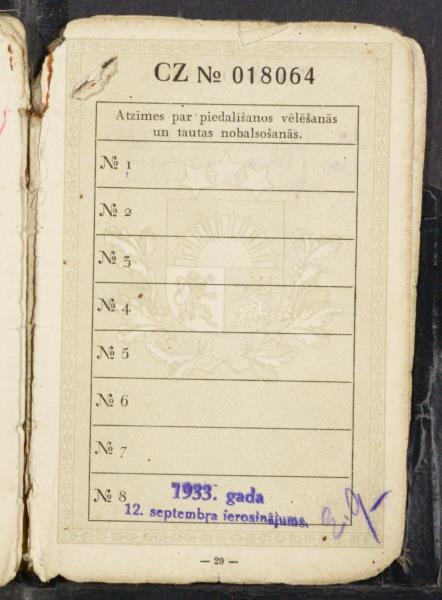 CZ № 018064
Atzīmes par piedalīšanos vēlēšanās
un tautas nobalsošanās.
№ 1
№ 2
№ 3
№ 4
№ 5
№ 6
№ 7
№ 8 1933. gada
12. septembra ierosinājums.
— 29 —